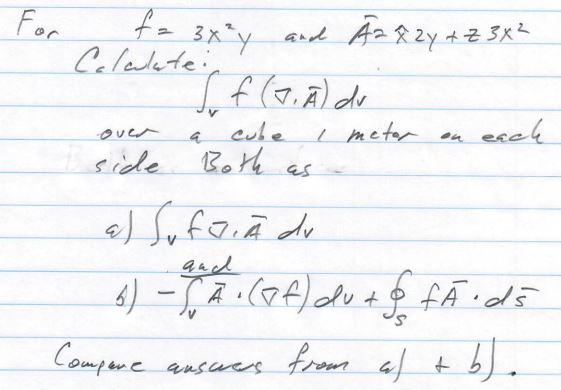 For f = 3x²y and Ā = x̂ 2y + z 3x²
Calculate:
∫ᵥ f (∇·Ā) dv
over a cube 1 meter on each
side. Both as -
a) ∫ᵥ f ∇·Ā dv
and
b) -∫ᵥ Ā·(∇f) dv + ∮ₛ f Ā·ds̄
Compare answers from a) + b).